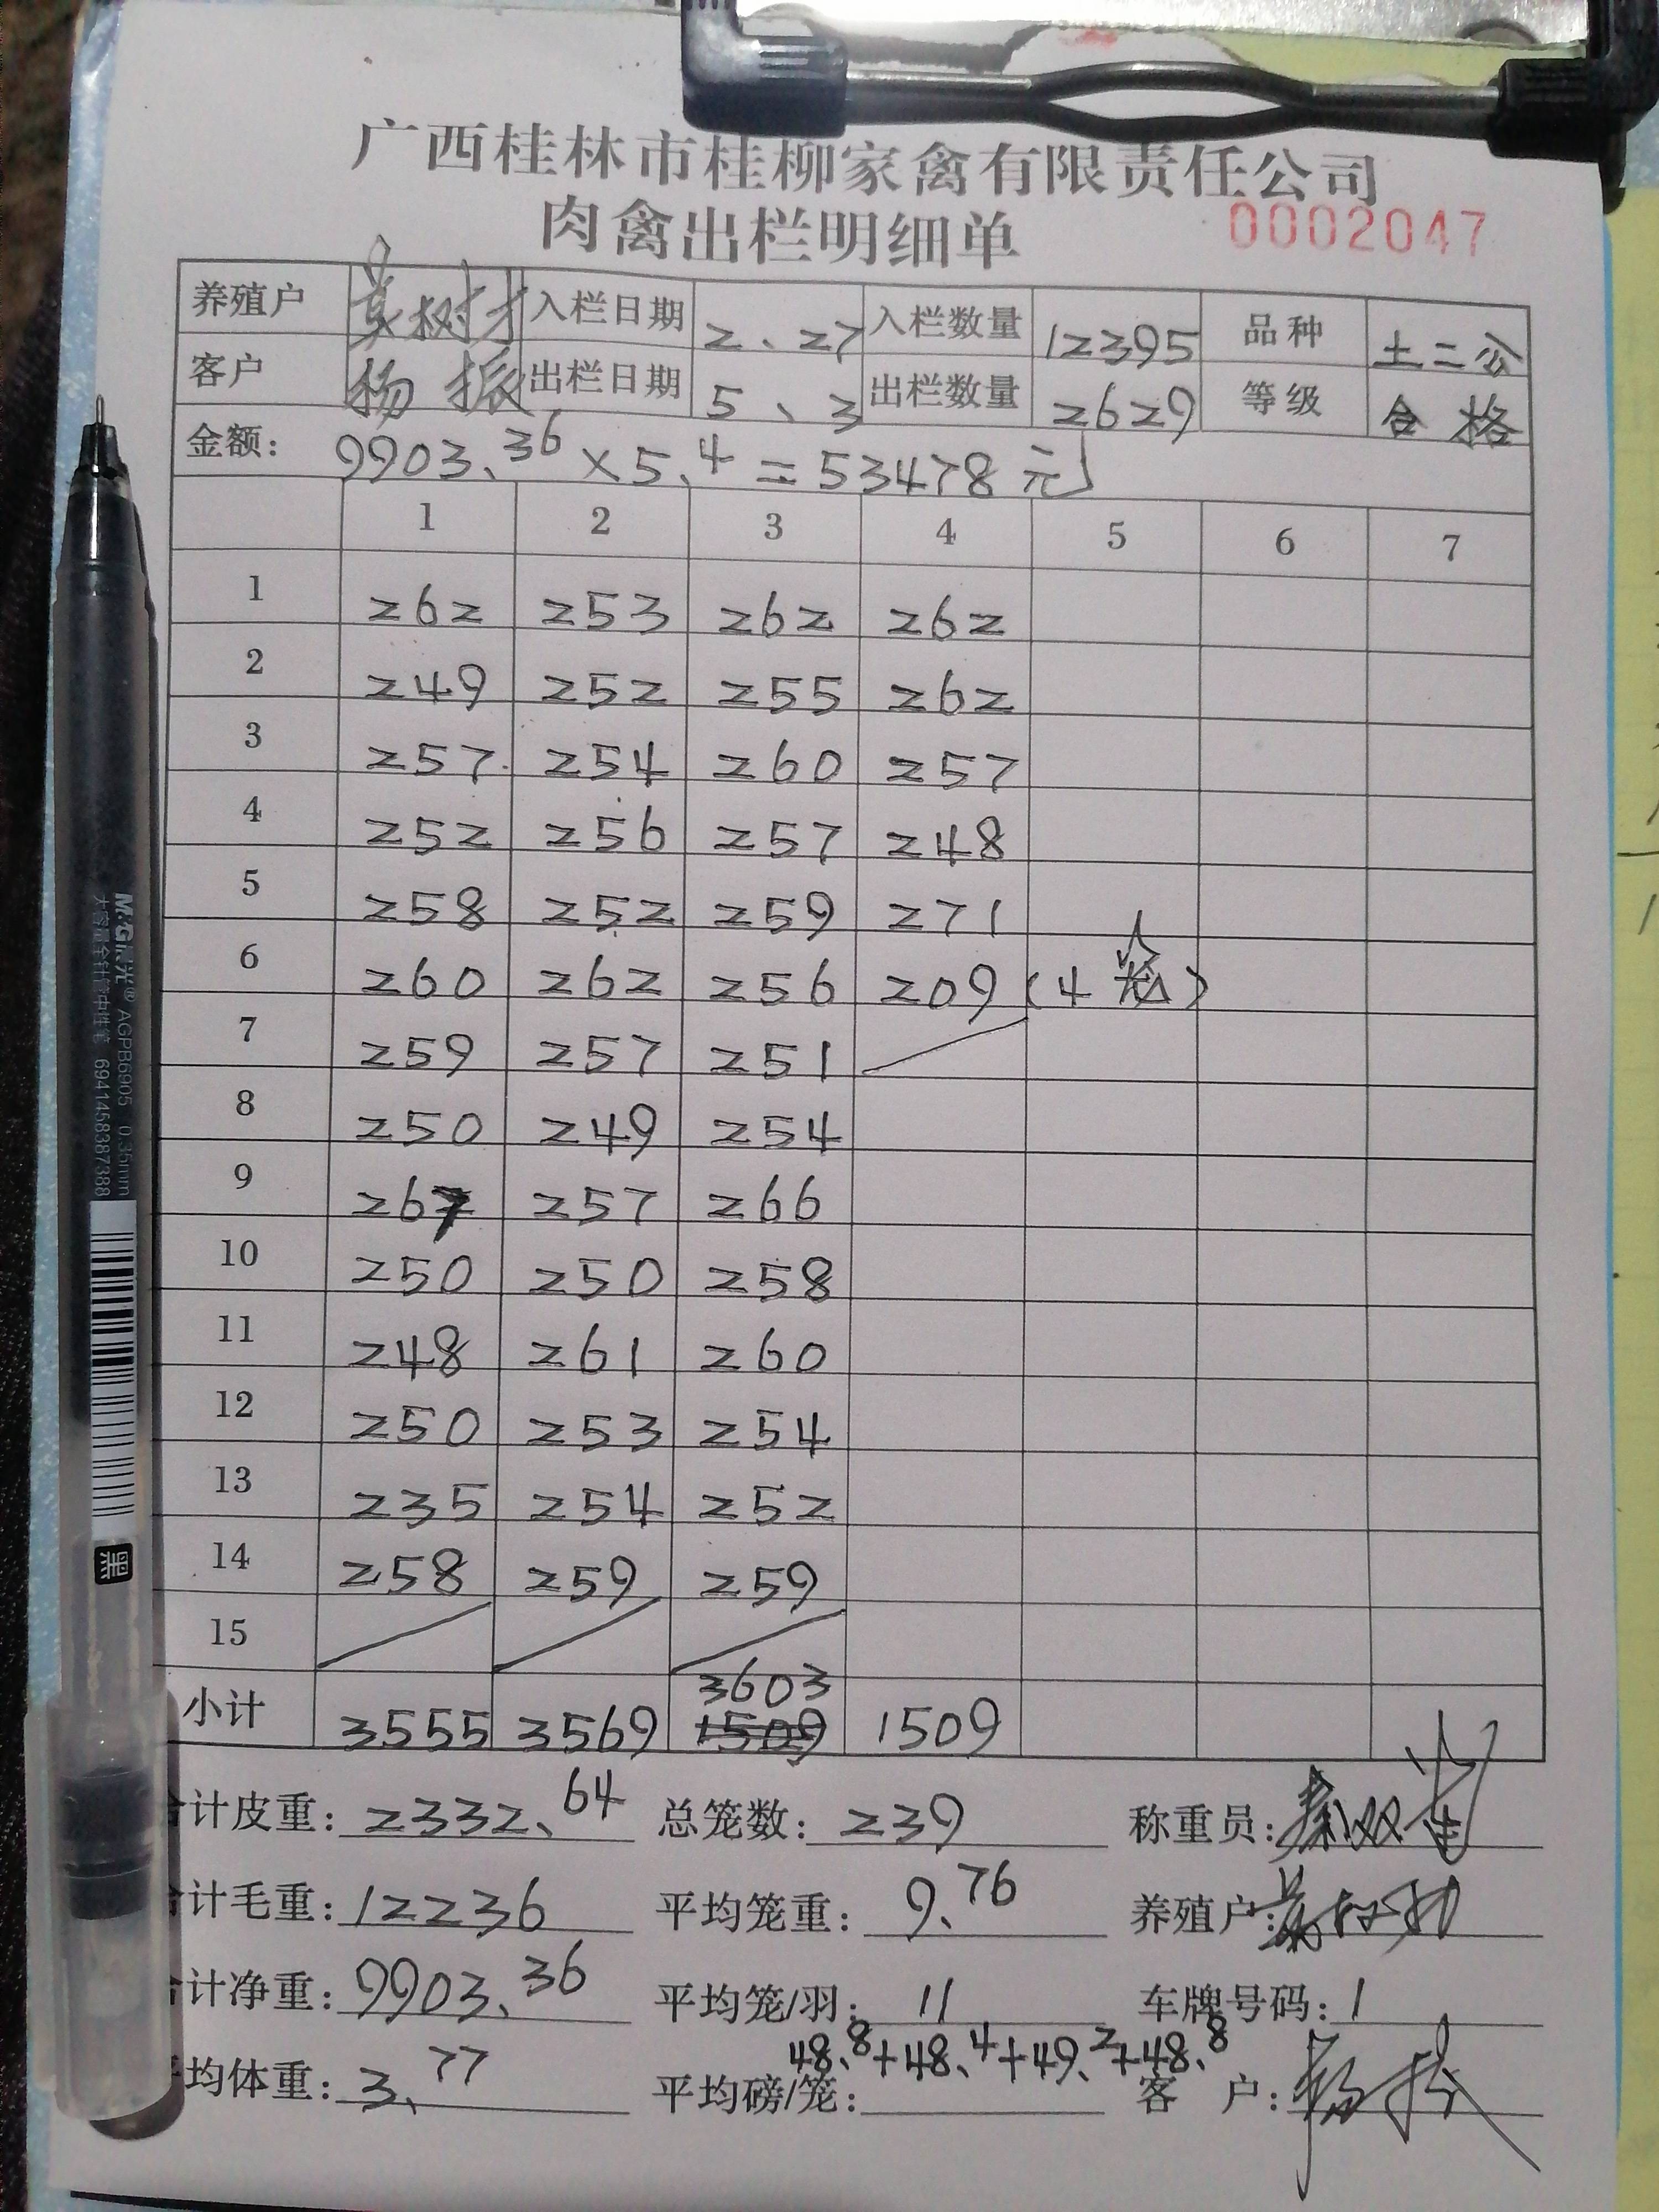 广西桂林市桂柳家禽有限责任公司
肉禽出栏明细单 0002047
养殖户 树才 入栏日期 2、27 入栏数量 12395 品种 土二公
客户 杨振 出栏日期 5、3 出栏数量 2629 等级 合格
金额: 9903、36×5、4=53478元
1 2 3 4 5 6 7
1 262 253 262 262
2 249 252 255 262
3 257 254 260 257
4 252 256 257 248
5 258 252 259 271
6 260 262 256 209 (4笼)
7 259 257 251
8 250 249 254
9 267 257 266
10 250 250 258
11 248 261 260
12 250 253 254
13 235 254 252
14 258 259 259
15
3603
小计 3555 3569 1509 1509
计皮重: 2332、64 总笼数: 239 称重员: 秦双生
计毛重: 12236 平均笼重: 9、76 养殖户:
计净重: 9903、36 平均笼/羽: 11 车牌号码: 1
48、8+48、4+49、2+48、8
均体重: 3、77 平均磅/笼: 客 户: 杨振
M&G 晨光® AGPB6905 0.35mm
大容量全针管中性笔 6941458387388
黑